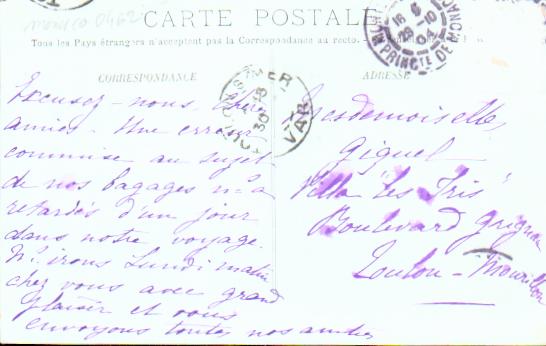 monaco 0462
CARTE POSTALE
Tous les Pays étrangers n'acceptent pas la Correspondance au recto.
CORRESPONDANCE
ADRESSE
PRINCTE DE MONACO
VAR
Excusez-nous, chères
amies. Une erreur
commise au sujet
de nos bagages n/s a
retardés d'un jour
dans notre voyage.
N/s irons Lundi matin
chez vous avec grand
plaisir et vous
envoyons toutes nos amitiés
Mesdemoiselles
Giguel
Villa "Les Iris"
Boulevard Grignan
Toulon - Mourillon